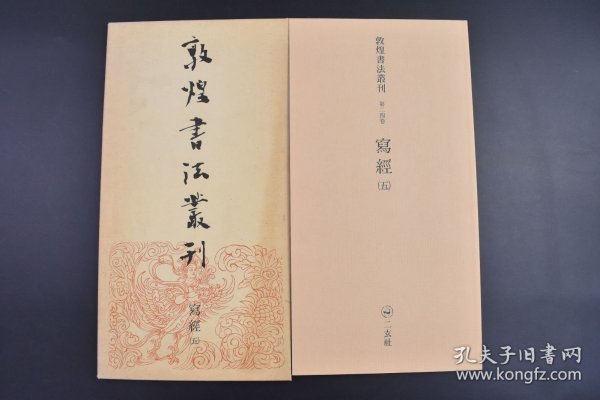 敦煌書法叢刊
寫經
(五)
敦煌書法叢刊
第二四卷
寫經
(五)
二玄社
孔夫子旧书网
www.kongfz.com